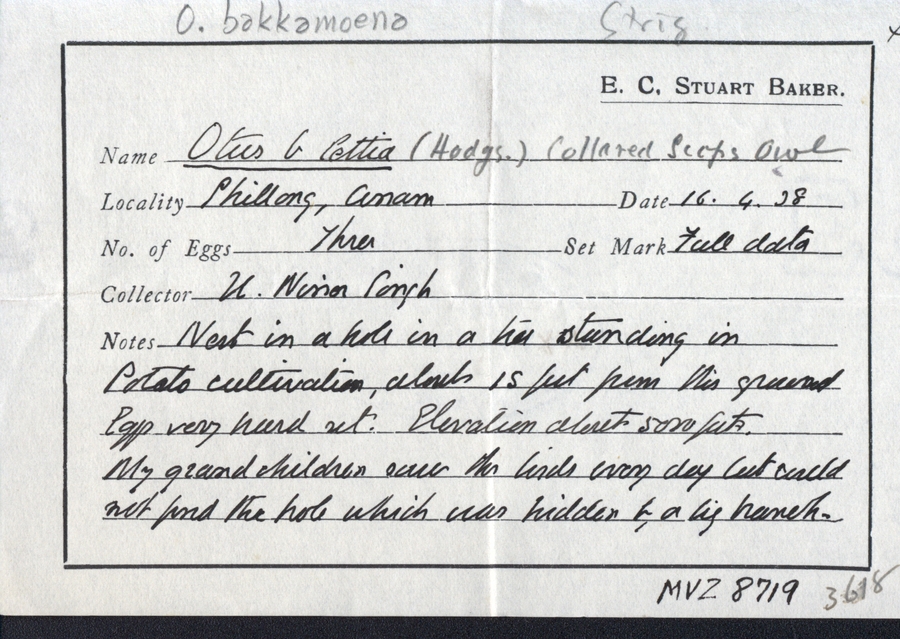 O. bakkamoena Strig.
E. C. STUART BAKER.
Name Otus b lettia (Hodgs.) Collared Scops Owl
Locality Shillong, Assam Date 16. 4. 28
No. of Eggs Three Set Mark Full data
Collector U. Nissor Singh
Notes Nest in a hole in a tree standing in
Potato cultivation, about 15 feet from the ground
Eggs very hard set. Elevation about 5000 feet.
My grandchildren saw the birds every day but could
not find the hole which was hidden by a big branch.
MVZ 8719 3618